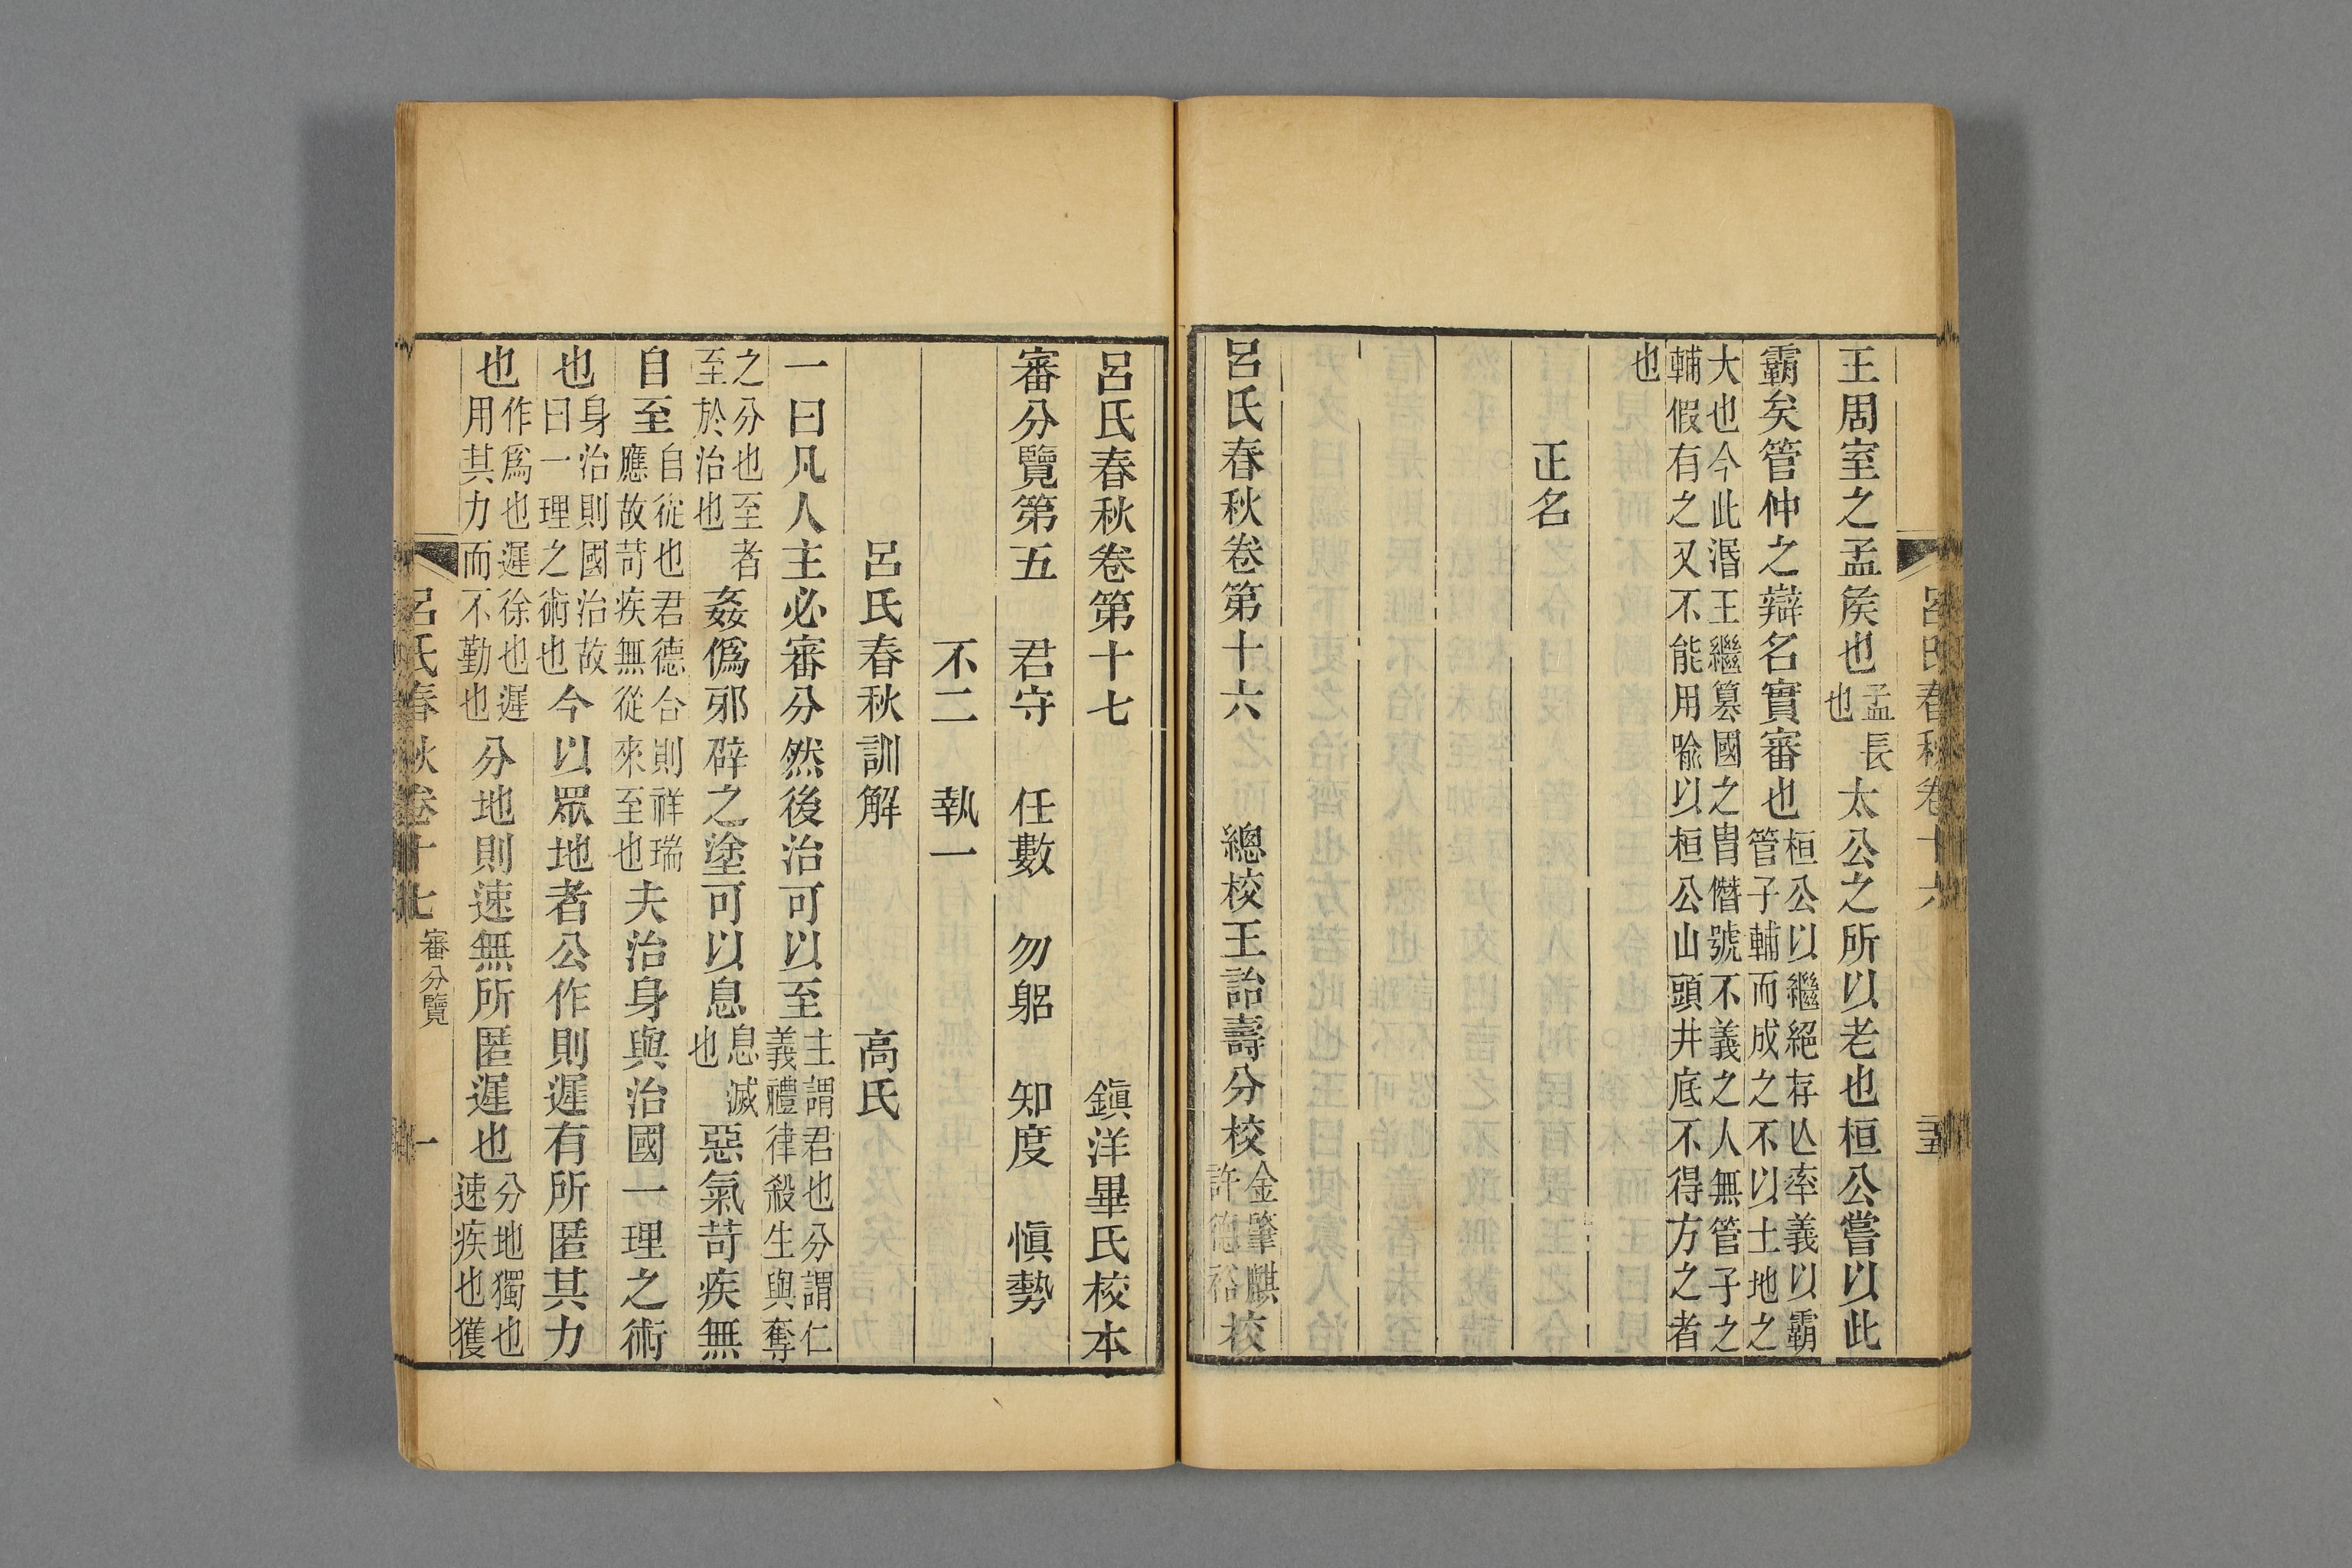 呂氏春秋卷十六
王周室之孟矦也孟長也太公之所以老也桓公嘗以此
霸矣管仲之辯名實審也桓公以繼絕存亾率義以霸管子輔而成之不以土地之
大也今此湣王繼篡國之胄僭號不義之人無管子之輔假有之又不能用喻以桓公山頭井底不得方之者
也
正名
呂氏春秋卷第十六 總校王詒壽分校金肇麒許德裕校
呂氏春秋卷第十七 鎭洋畢氏校本
審分覽第五 君守 任數 勿躬 知度 愼勢
不二 執一
呂氏春秋訓解 高氏
一曰凡人主必審分然後治可以至主謂君也分謂仁義禮律殺生與奪
之分也至者至於治也姦僞邪辟之塗可以息息滅也惡氣苛疾無
自至自從也君德合則祥瑞應故苛疾無從來至也夫治身與治國一理之術
也身治則國治故曰一理之術也今以眾地者公作則遲有所匿其力
也作爲也遲徐也遲用其力而不勤也分地則速無所匿遲也分地獨也速疾也獲
呂氏春秋卷十七 審分覽 一